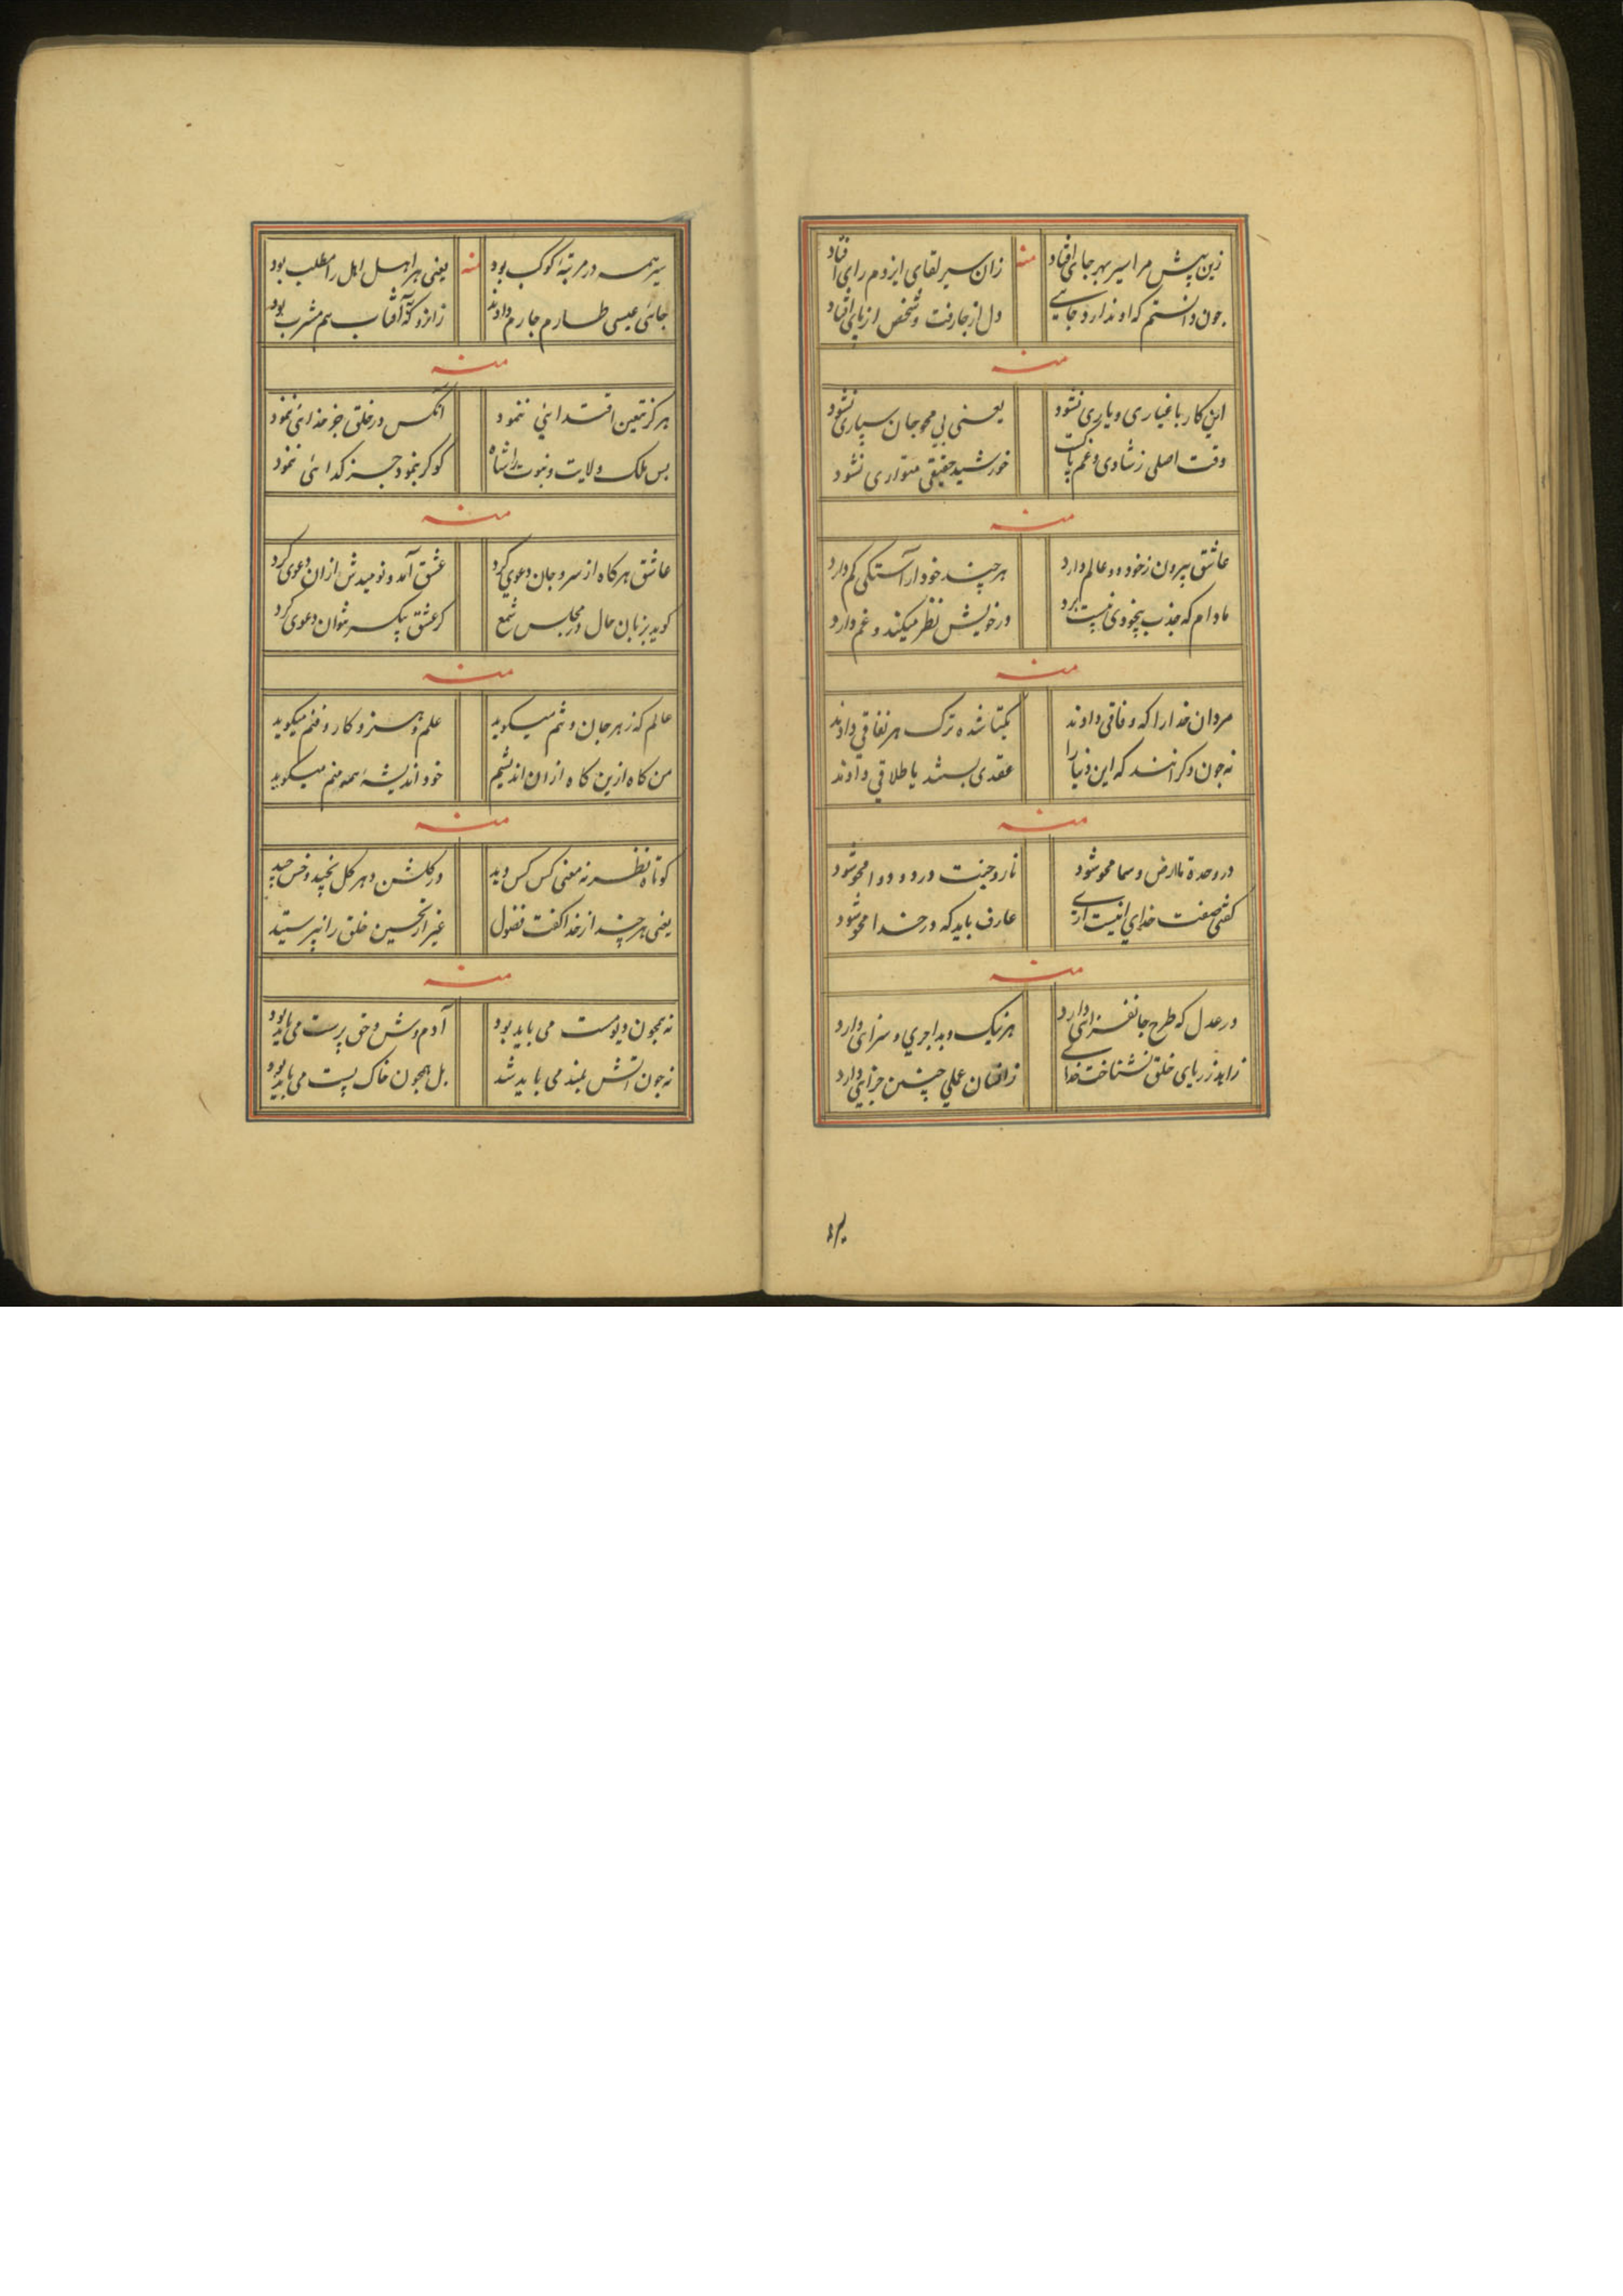 زین پیش مرا سیر بهر جای افتاد
منه
زان سیر لقای ایزدم رای افتاد
چون دانستم که او ندارد جایی
دل از جا رفت و شخص از پای افتاد
منه
این کار باغیاری و یاری نشود
یعنی بی محو جان سپاری نشود
وقت اصلی ز شادی و غم پاکست
خورشید حقیقی متواری نشود
منه
عاشق بیرون ز خود دو عالم دارد
هر چند خود آراستگی کم دارد
مادام که جذب بیخودی نیست برد
در خویش نظر میکند و غم دارد
منه
مردان خدا را که وفاقی دادند
یکتا شده ترک هر نفاقی دادند
نه جون دکرانند که این دنیا را
عقدی بستند یا طلاقی دادند
منه
در وحدة ما ارض و سما محو شود
نار و جنت درد و دوا محو شود
کفتی صفت خدای انیت اری
عارف باید که در خدا محو شود
منه
در عدل که طرح جانفزائی دارد
هر نیک و بد اجری و سزائی دارد
زاهد ز ریای خلق نشناخت خدا
زانسان عملی چنین جزایی دارد
سیر همه در مرتبۀ کوکب بود
منه
یعنی هر اهل اهل را مطلب بود
جائی عیسی طارم جارم دادند
زانرو که آفتاب هم مشرب بود
منه
هرکز بتعین اقتدایی ننمود
انکس در خلق جز خدائی ننمود
بس ملک ولایت و نبوت را شاه
کو کر بنمود جز کدائی ننمود
منه
عاشق هرکاه از سر و جان دعوی کرد
عشق آمد و نومیدش ازان دعوی کرد
کوید بزبان حال در مجلس شمع
کز عشق بیک سر نتوان دعوی کرد
منه
عالم که ز هر جان و تنم میکوید
علم و هنر و کار و فنم میکوید
من کاه ازین کاه ازان اندیشم
خود اندیشۀ همه منم میکوید
منه
کوتاه نظر نه معنی کس کس دید
در کلشن دهر کل نچید و خس چید
یعنی هر چند از خدا کفت فضول
غیر از تحسین خلق را نپرستید
منه
نه همچون دیو مست می باید بود
آدم وش و حق پرست می باید بود
نه جون اتش بلند می باید شد
بل همچون خاک پست می باید بود